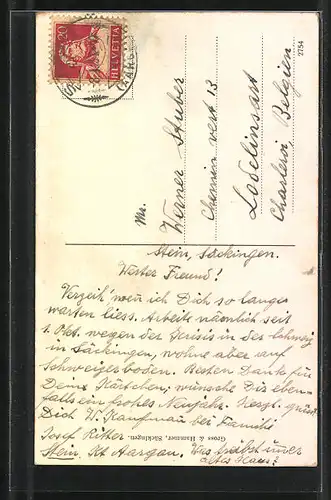 20
HELVETIA
(AARGAU)
2754
Mr.
Werner Stuber
Chemin vert 13
Lodelinsart
Charleroi, Belgien
Stein, Säckingen.
Werter Freund!
Verzeih' wenn ich Dich so lange
warten liess. Arbeite nämlich seit
1. Okt. wegen der Krisis in der Schweiz
in Säckingen, wohne aber auf
Schweizerboden. Besten Dank für
Deine Kärtchen; wünsche Dir eben-
falls ein frohes Neujahr. Herzl. grüsst
Dich W. Kaufmann bei Familie
Josef Ritter
Stein, Kt. Aargau. Was treibst immer
altes Haus?
Gross & Hammer, Säckingen.